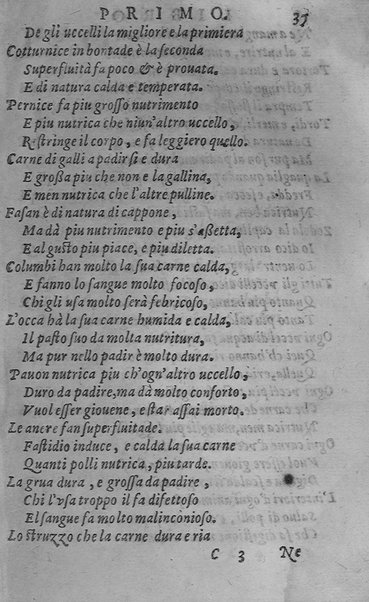 PRIMO. 37
De gli uccelli la migliore e la primiera
Cotturnice in bontade è la seconda
Superfluità fa poco & è prouata.
E di natura calda e temperata.
Pernice fa piu grosso nutrimento
E piu nutrica che niun'altro uccello,
Restringe il corpo, e fa leggiero quello.
Carne di galli a padirsi e dura
E großa piu che non e la gallina,
E men nutrica che l'altre pulline.
Fasan è di natura di cappone,
Ma dà piu nutrimento e piu s'aßetta,
E al gusto piu piace, e piu diletta.
Columbi han molto la sua carne calda,
E fanno lo sangue molto focoso,
Chi gli usa molto serà febricoso,
L'occa hà la sua carne humida e calda,
Il pasto suo da molta nutritura,
Ma pur nello padir è molto dura.
Pauon nutrica piu ch'ogn'altro uccello,
Duro da padire, ma dà molto conforto,
Vuol esser giouene, e star assai morto.
Le anere fan superfluitade.
Fastidio induce, e calda la sua carne
Quanti polli nutrica, piu tarde.
La grua dura, e grossa da padire,
Chi l'vsa troppo il fa difettoso
El sangue fa molto malinconioso.
Lo struzzo che la carne dura e ria
C 3 Ne